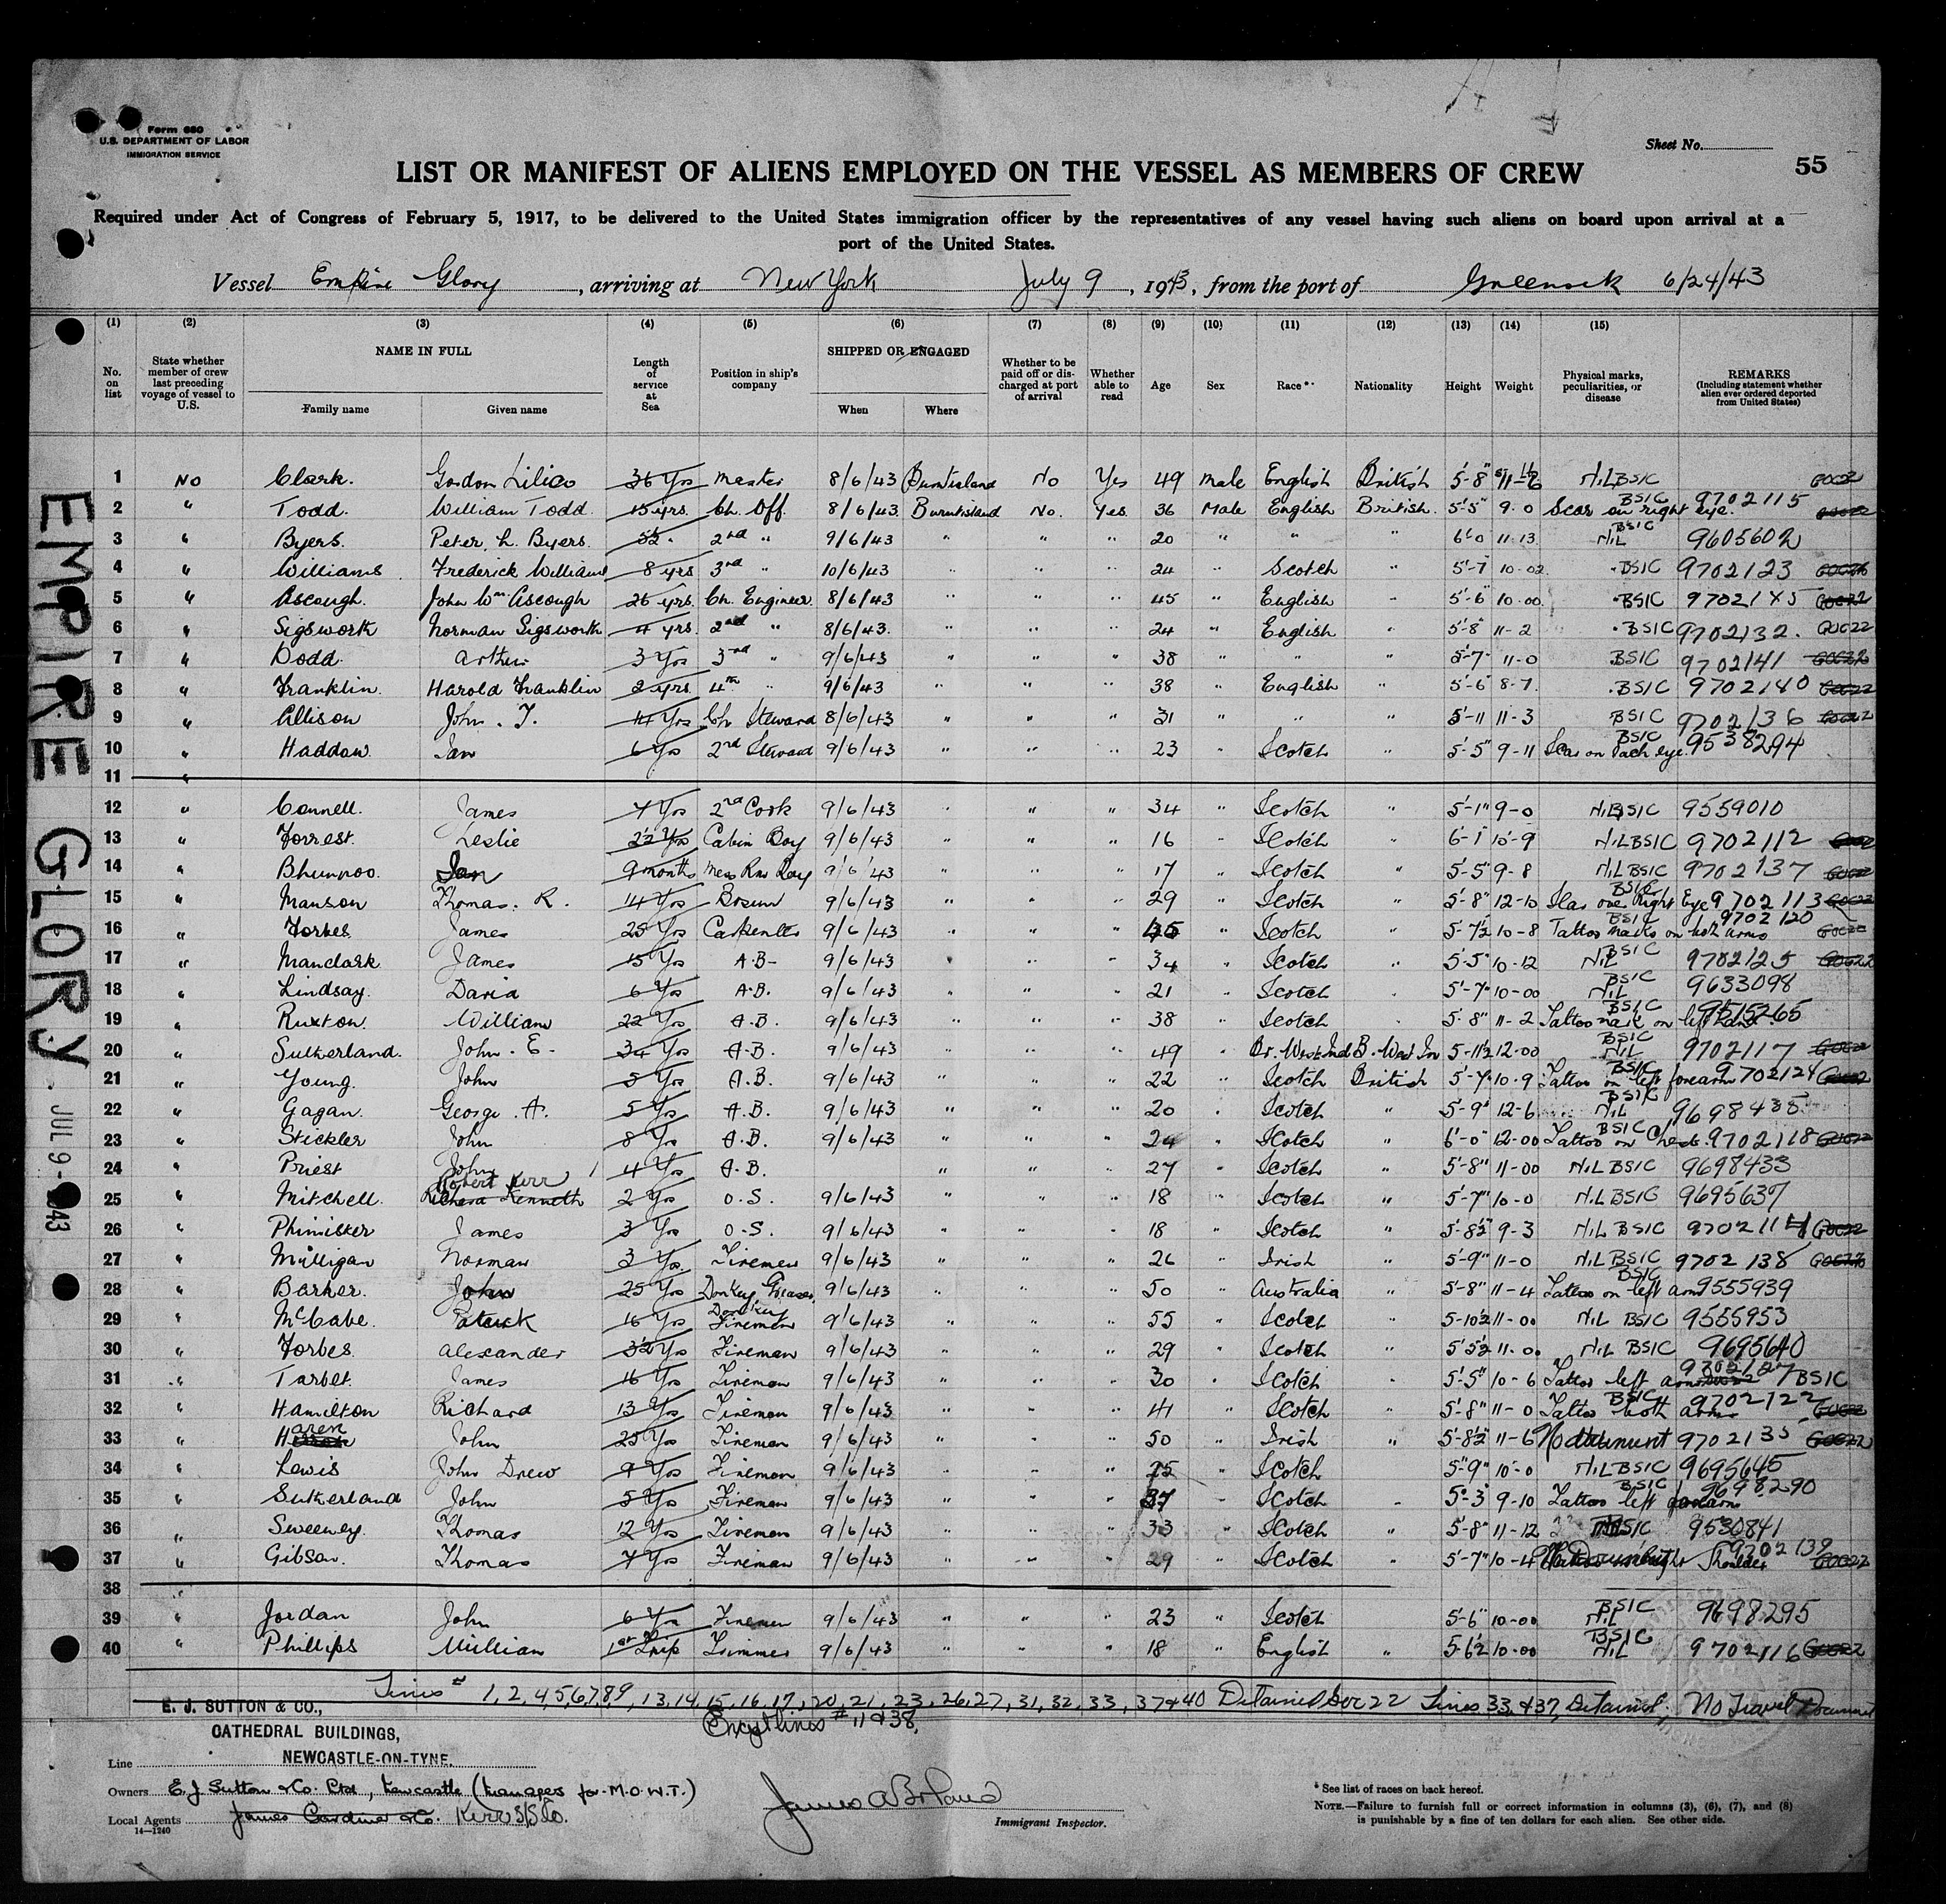 Form 680
U.S. DEPARTMENT OF LABOR
IMMIGRATION SERVICE
Sheet No.
LIST OR MANIFEST OF ALIENS EMPLOYED ON THE VESSEL AS MEMBERS OF CREW
55
Required under Act of Congress of February 5, 1917, to be delivered to the United States immigration officer by the representatives of any vessel having such aliens on board upon arrival at a
port of the United States.
Vessel Empire Glory, arriving at New York July 9, 1943, from the port of Greenock 6/24/43
(1) (2) (3) (4) (5) (6) (7) (8) (9) (10) (11) (12) (13) (14) (15)
No. on list
State whether member of crew last preceding voyage of vessel to U.S.
NAME IN FULL
Family name Given name
Length of service at Sea
Position in ship's company
SHIPPED OR ENGAGED
When Where
Whether to be paid off or discharged at port of arrival
Whether able to read
Age Sex Race* Nationality Height Weight
Physical marks, peculiarities, or disease
REMARKS
(Including statement whether alien ever ordered deported from United States)
1 No Clark. Gordon 36 Yrs Master 8/6/43 Burntisland No Yes 49 Male English British 5'-8" NIL BSIC
2 " Todd. William Todd. 15 yrs. Ch. Off. 8/6/43 Burntisland No. Yes. 36 Male English British. 5'-5" 9-0 Scar on right eye. BSIC 9702115
3 " Byers. Peter. L. Byers. 2nd " 9/6/43 " " " 20 " " " 6'0 11-13 NIL BSIC 9605602
4 " Williams Frederick Williams 8 yrs 3rd " 10/6/43 " " " 24 " Scotch " 5'-7 10-02 BSIC 9702123
5 " Ascough. John Wm. Ascough 26 yrs. Ch. Engineer. 8/6/43 " " " 45 " English " 5'-6" 10-00 BSIC
6 " Sigsworth Norman Sigsworth 4 yrs. 2nd " 8/6/43. " " " 24 " English " 5'-8" 11-2 BSIC 9702132.
7 " Dodd. Arthur 3 Yrs 3rd " 9/6/43 " " " 38 " " " 5'-7" 11-0 BSIC 9702141
8 " Franklin. Harold Franklin 2 yrs. 4th " 9/6/43 " " " 38 " English " 5'-6" 8-7. BSIC 9702140
9 " Allison John. T. 14 Yrs Ch Steward 8/6/43 " " " 31 " " " 5'-11 11-3 BSIC 9702136
10 " Haddow. Ian 6 Yrs 2nd Steward 9/6/43 " " " 23 " Scotch " 5'-5" 9-11 Scar on each eye. BSIC 9538294
11 "
12 " Connell. James 7 Yrs 2nd Cook 9/6/43 " " " 34 " Scotch " 5'-1" 9-0 NIL BSIC 9559010
13 " Forrest. Leslie Cabin Boy 9/6/43 " " " 16 " Scotch " 6'-1" 10-9 NIL BSIC 9702112
14 " Bhunnoo. Ian 9 months Mess Rm Boy 9/6/43 " " " 17 " Scotch " 5'-5" 9-8 NIL BSIC 9702137
15 " Manson Thomas. R. 14 Yrs Bosun 9/6/43 " " " 29 " Scotch " 5'-8" 12-10 Scar over Right Eye BSIC 9702113
16 " Forbes James 25 Yrs Carpenter 9/6/43 " " " 45 " Scotch " 10-8 Tattoo marks on both arms BSIC 9702120
17 " Manclark James 15 Yrs A.B- 9/6/43 " " " 34 " Scotch " 5'-5" 10-12 NIL BSIC 9702125
18 " Lindsay. David 6 Yrs A.B. 9/6/43 " " " 21 " Scotch " 5'-7" 10-00 NIL BSIC 9633098
19 " Ruxton. William 22 Yrs A.B. 9/6/43 " " " 38 " Scotch " 5'-8" 11-2 Tattoo mark on left hand BSIC 9515265
20 " Sutherland. John. E. 34 Yrs A.B. 9/6/43 " " " 49 " Br. West Ind B. West In 5-11½ 12-00 NIL BSIC 9702117
21 " Young. John 5 Yrs A.B. 9/6/43 " " " 22 " Scotch British 5'-7" 10-9 Tattoo on left forearm BSIC 9702124
22 " Gagan. George. A. 5 Yrs A.B. 9/6/43 " " " 20 " Scotch " 5'-9" 12-6 NIL BSIC 9698435
23 " Stickler John 8 Yrs A.B. 9/6/43 " " " 24 " Scotch " 6'-0" 12-00 Tattoo on Chest. BSIC 9702118
24 " Priest John 4 Yrs A.B. " " " 27 " Scotch " 5'-8" 11-00 NIL BSIC 9698433
25 " Mitchell. Robert Kerr Richard Kenneth 2 Yrs O.S. 9/6/43 " " " 18 " Scotch " 5'-7" 10-0 NIL BSIC 9695637
26 " Phimister James 3 Yrs O.S. 9/6/43 " " " 18 " Scotch " 5'-8½" 9-3 NIL BSIC 9702114
27 " Milligan Norman 3 Yrs. Firemen 9/6/43 " " " 26 " Irish " 5'-9" 11-0 NIL BSIC 9702138
28 " Barker. John 25 Yrs Donkey Greaser. 9/6/43 " " " 50 " Australia " 5'-8" 11-4 Tattoo on left arm BSIC 9555939
29 " McCabe. Patrick 16 Yrs Donkey Fireman 9/6/43 " " " 55 " Scotch " 5-10½ 11-00 NIL BSIC 9555953
30 " Forbes. Alexander Fireman 9/6/43 " " " 29 " Scotch " 5'5½ 11-0. NIL BSIC 9695640
31 " Tarbet. James 16 Yrs Fireman 9/6/43 " " " 30 " Scotch " 5'-5" 10-6 Tattoo left arm 9702127 BSIC
32 " Hamilton Richard 13 Yrs Fireman 9/6/43 " " " 41 " Scotch " 5'-8" 11-0 Tattoo both arms BSIC 9702122
33 " Haren John 25 Yrs Fireman 9/6/43 " " " 50 " Irish " 5'-8½" 11-6 No document 9702135
34 " Lewis John Drew 9 Yrs Fireman 9/6/43 " " " 25 " Scotch 5'-9" 10-0 NIL BSIC 9695645
35 " Sutherland John 5 Yrs Fireman 9/6/43 " " " 37 " Scotch " 5'-3" 9-10 Tattoo left forearm BSIC 9698290
36 " Sweeney. Thomas 12 Yrs Fireman 9/6/43 " " " 33 " Scotch " 5'-8" 11-12 BSIC 9530841
37 " Gibson. Thomas 7 Yrs Fireman 9/6/43 " " " 29 " Scotch " 5'-7" 10-4 Shoulder 9702139
38 "
39 " Jordan John 6 Yrs Fireman 9/6/43 " " " 23 " Scotch 5'-6" 10-00 NIL BSIC 9698295
40 " Phillips William 1st Trip Trimmer 9/6/43 " " " 18 " English " 5-6½ 10-00 NIL BSIC 9702116
Lines # 1, 2, 4, 5, 6, 7, 8, 9, 13, 14, 15, 16, 17, 20, 21, 23, 26, 27, 31, 32, 33, 37 & 40 Detained Goc 22 Lines 33 & 37, Detained; No Travel Document
Except lines # 11 & 38.
E. J. SUTTON & CO.,
CATHEDRAL BUILDINGS,
NEWCASTLE-ON-TYNE.
Line
Owners E. J. Sutton & Co. Ltd, Newcastle (Managers for M.O.W.T.)
Local Agents James Cardine & Co. Kerr S/S Co.
14—1240
Immigrant Inspector.
* See list of races on back hereof.
NOTE.—Failure to furnish full or correct information in columns (3), (6), (7), and (8)
is punishable by a fine of ten dollars for each alien. See other side.
EMPIRE GLORY
JUL 9 - 1943